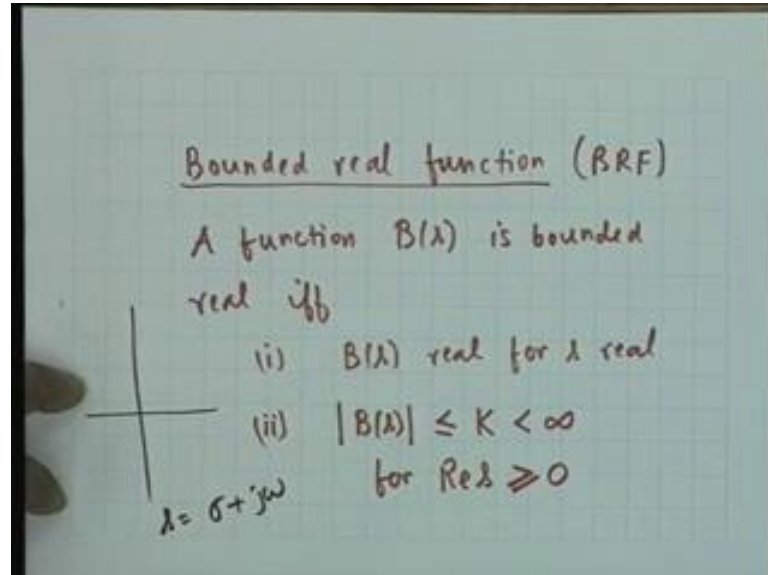 Bounded real function (BRF)
A function B(s) is bounded
real iff
(i) B(s) real for s real
(ii) |B(s)| ≤ K < ∞
for Re s ⩾ 0
s = σ + jω